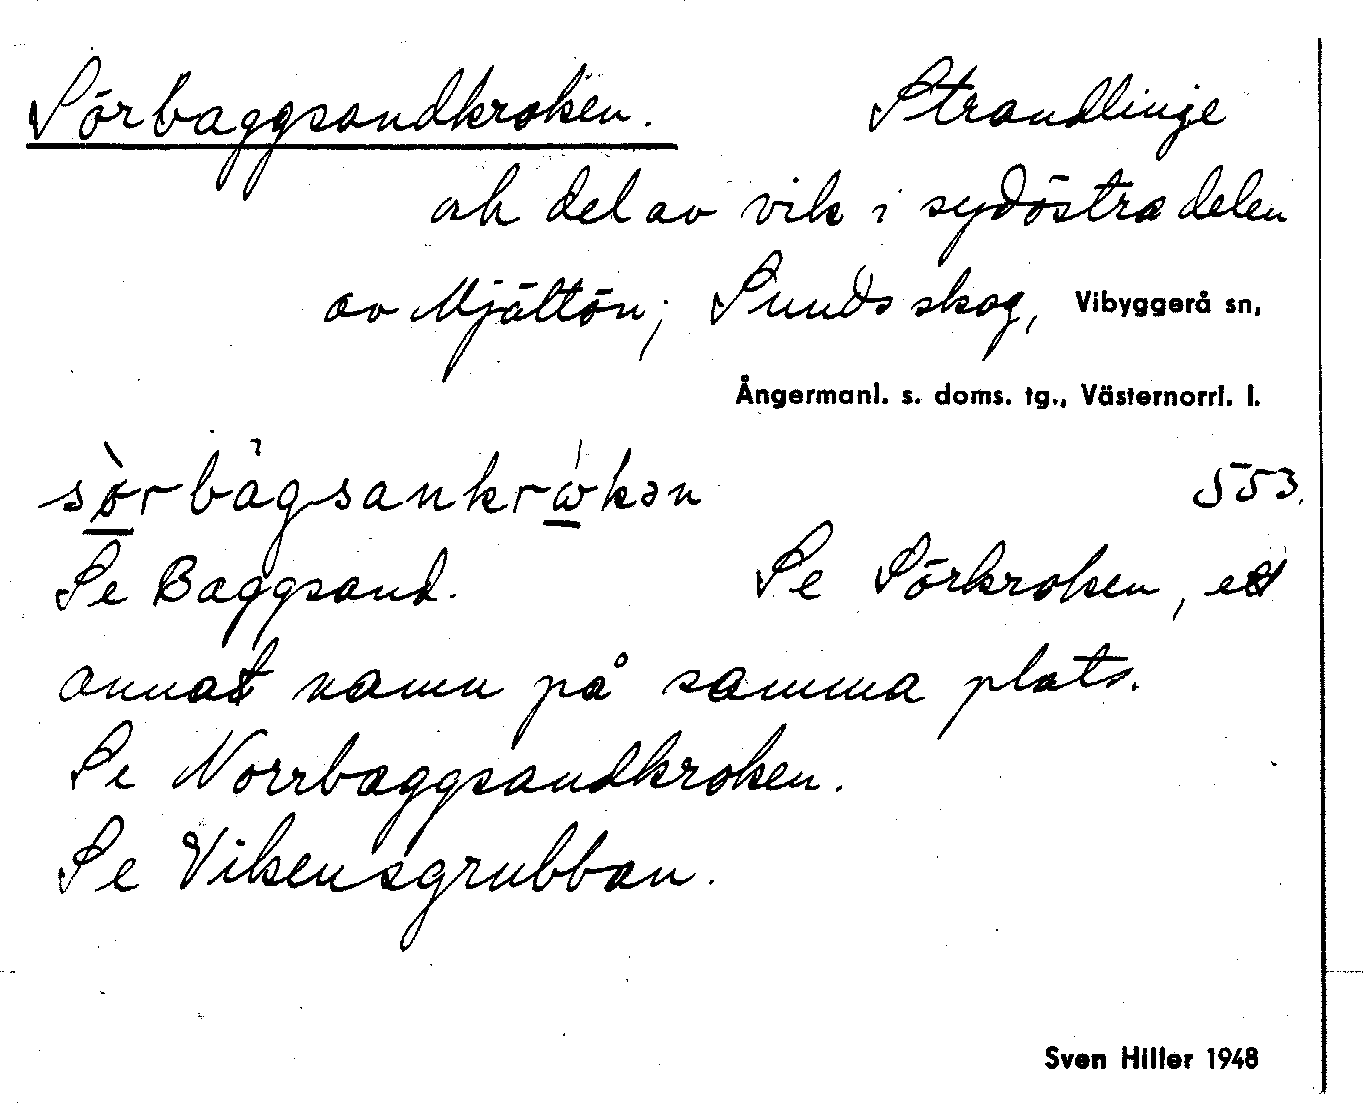 Sörbaggsandkroken. Strandlinje
och del av vik i sydöstra delen
av Mjältön; Sunds skog, Vibyggerå sn,
Ångermanl. s. doms. tg., Västernorrl. l.
sörbagsankrωkən 553.
Se Baggsand. Se Sörkroken, ett
annat namn på samma plats.
Se Norrbaggsandkroken.
Se Vikensgrubban.
Sven Hiller 1948